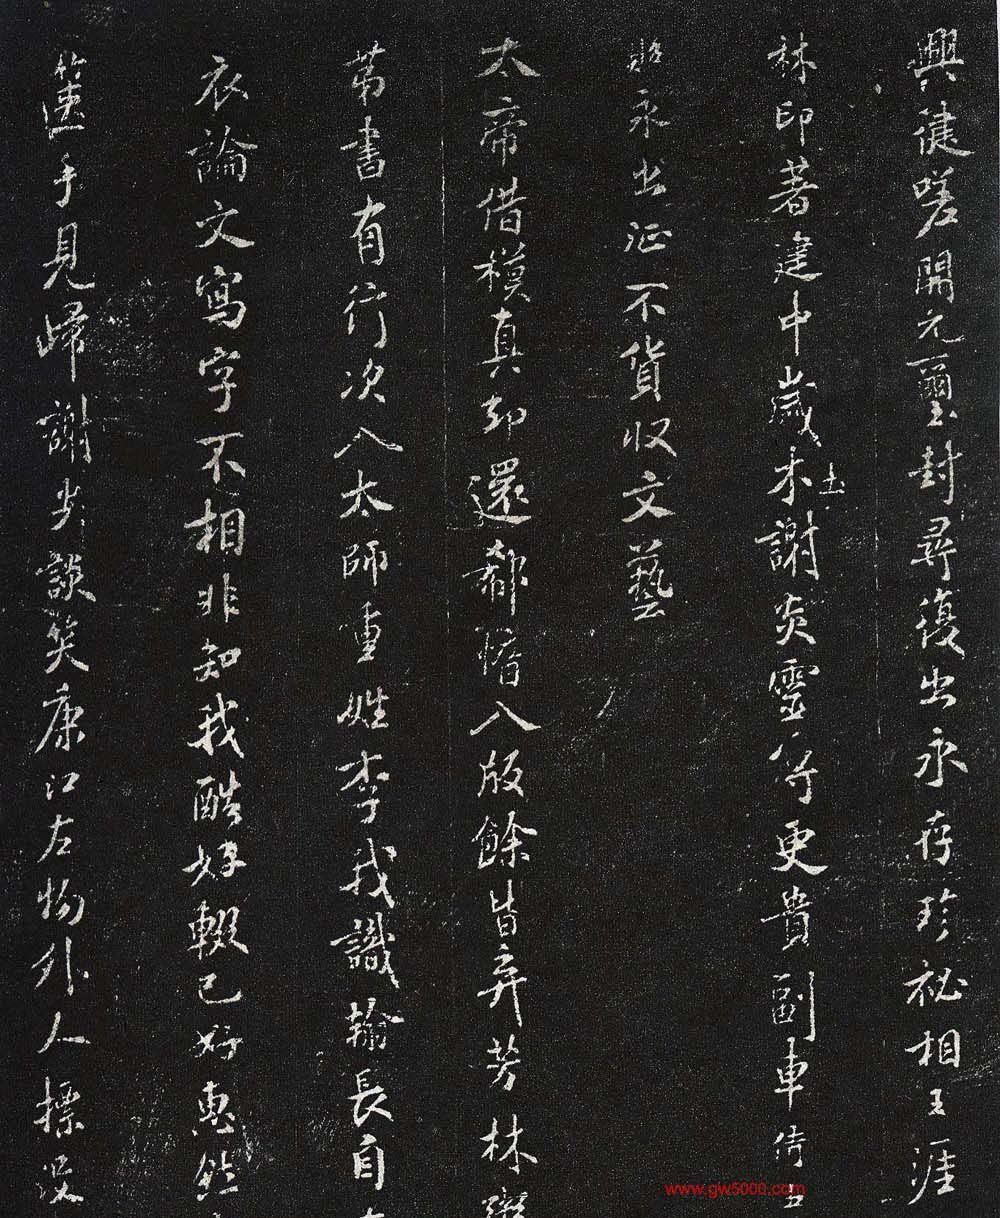 興健嗟開元璽封尋復出永存珍祕相王涯
林印著建中歲木玉謝炎靈符更貴副車倩玉
永出征不貨收文藝
太帝借模真却還郗愔八版餘皆弃芳林
書有行次入太師重姓李我識翰長自
衣論文寫字不相非知我酷好輟己好惠然
篋手見歸謝安談笑康江左物外人標没
www.gw5000.com